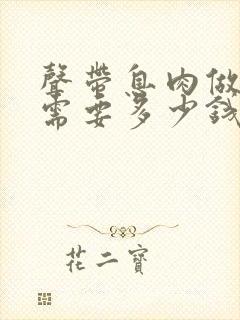 聲帶息肉做
需要多少錢
花二寶